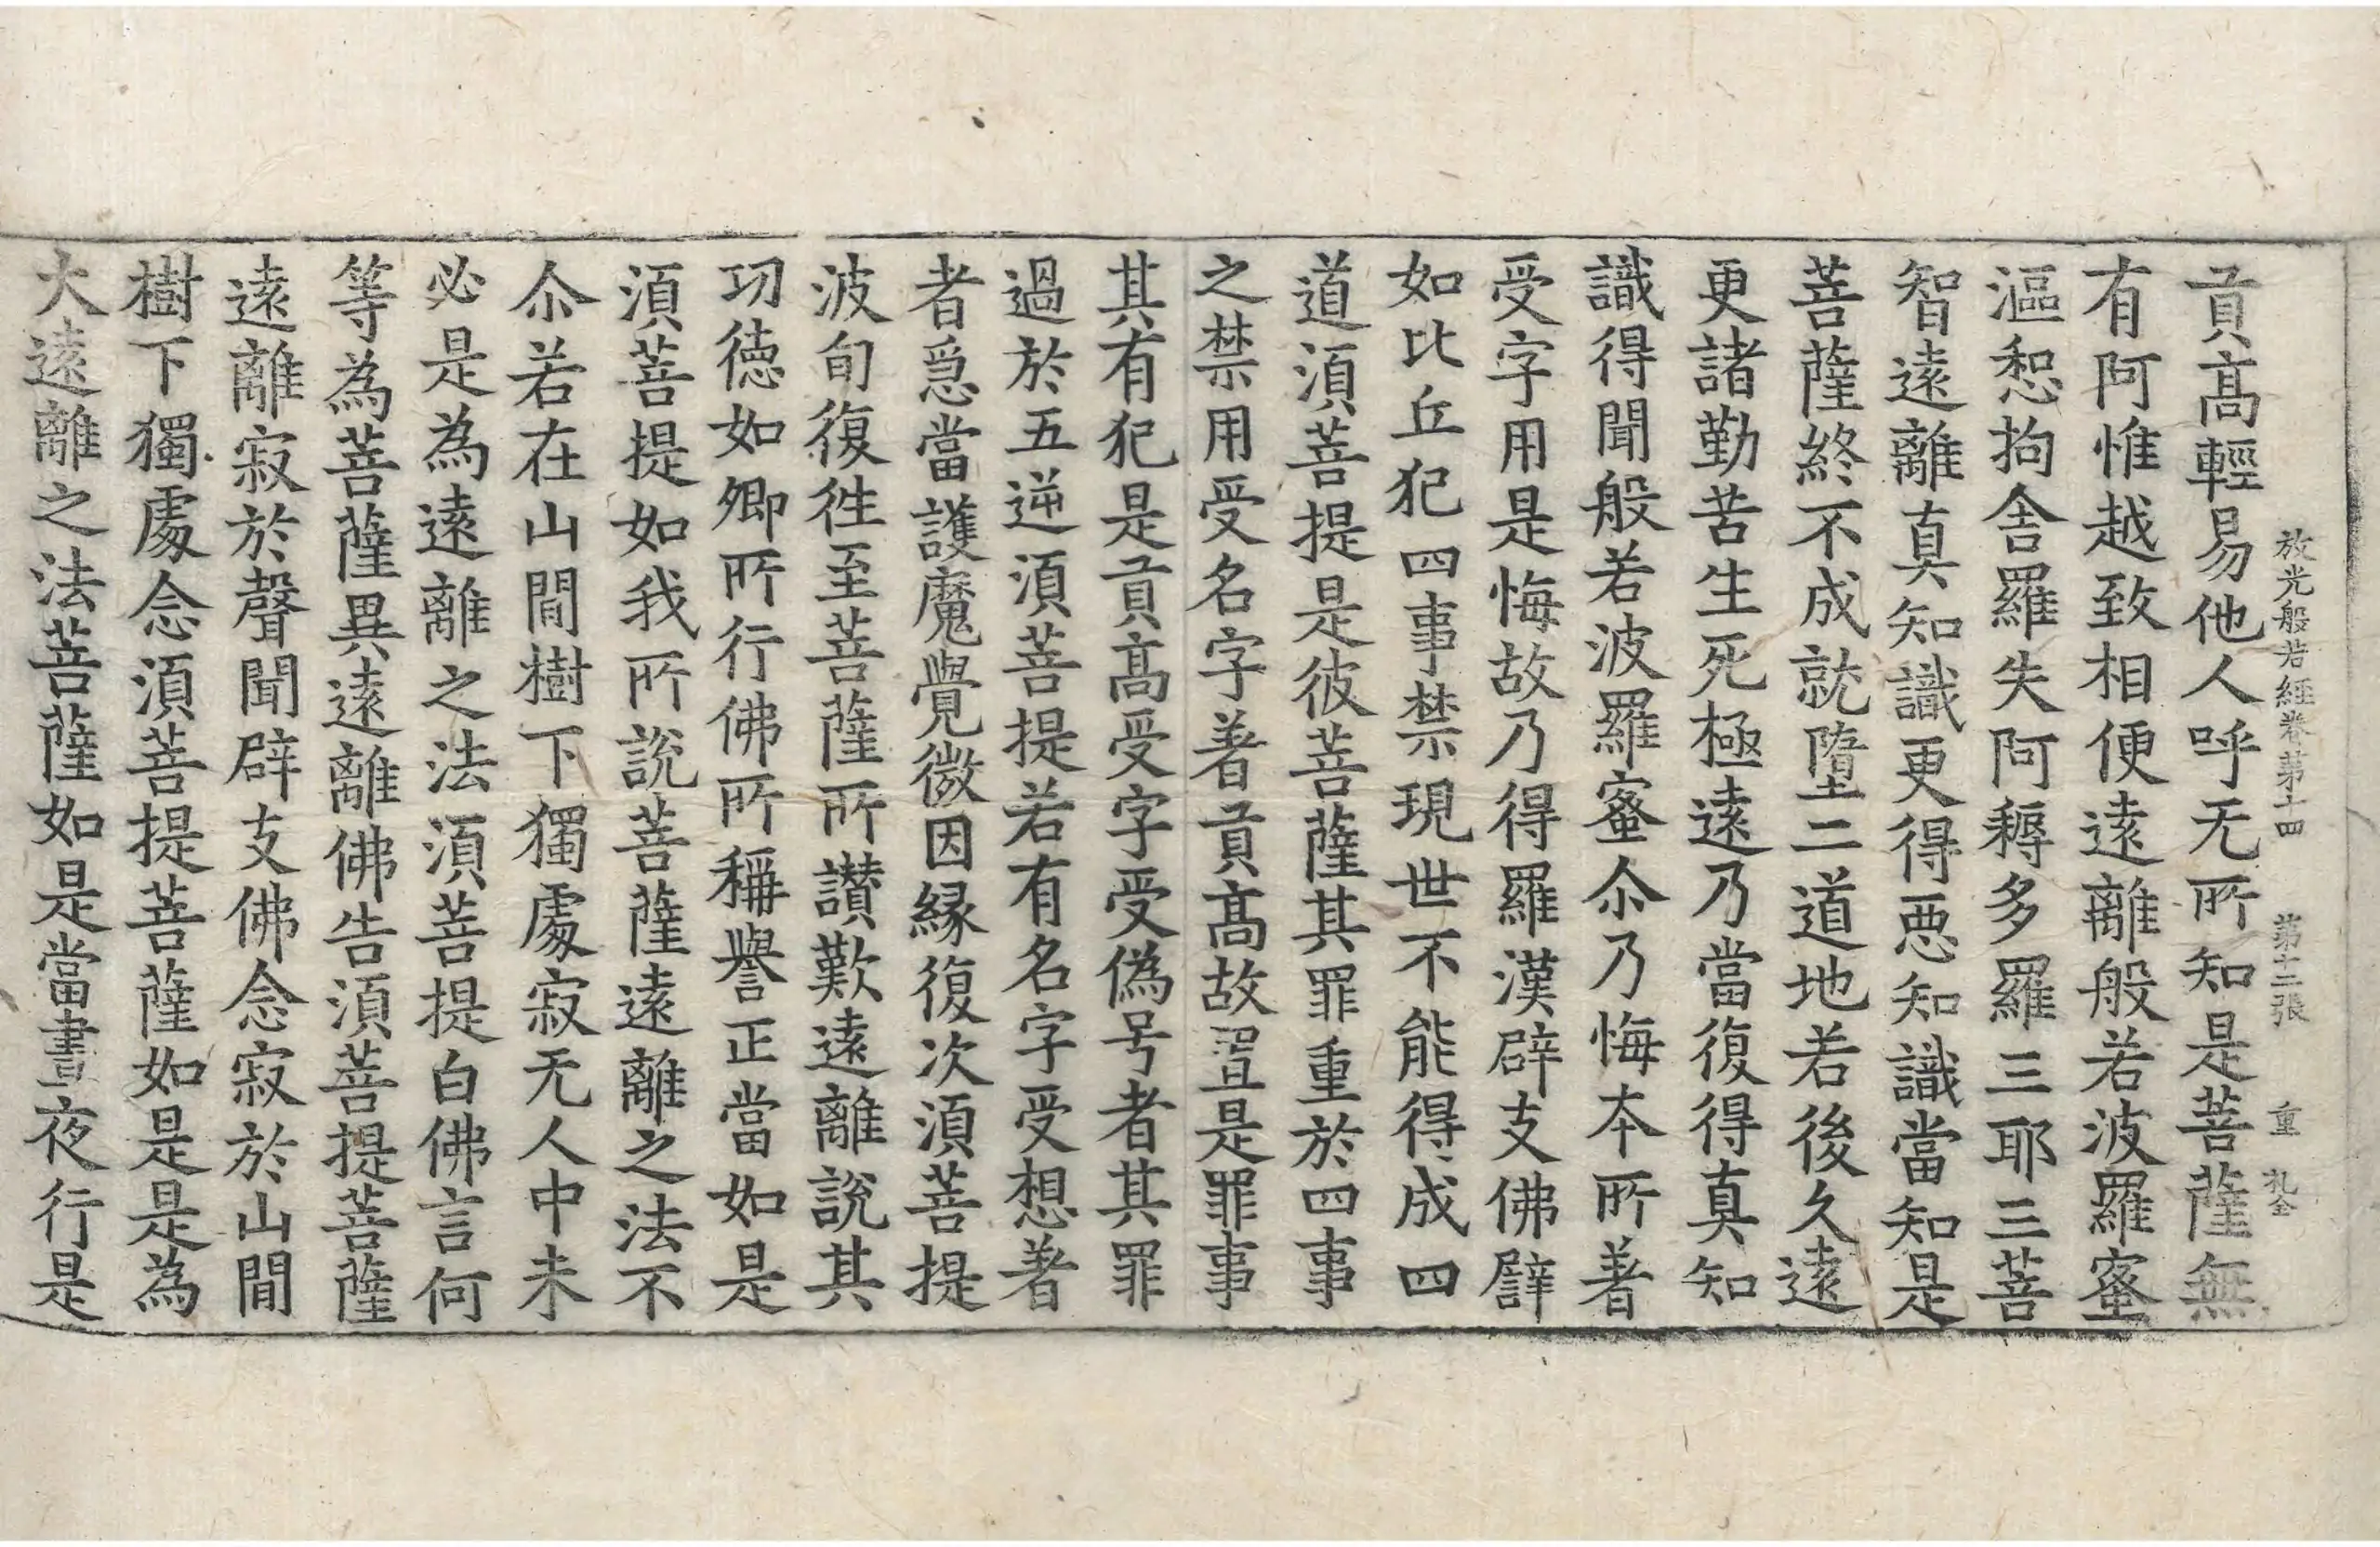 放光般若經卷第十四 第十二張 重 札全
貢髙輕易他人呼无所知是菩薩無
有阿惟越致相便遠離般若波羅蜜
漚惒拘舍羅失阿耨多羅三耶三菩
智遠離真知識更得惡知識當知是
菩薩終不成就墮二道地若後久遠
更諸勤苦生死極遠乃當復得真知
識得聞般若波羅蜜尒乃悔本所著
受字用是悔故乃得羅漢辟支佛譬
如比丘犯四事禁現世不能得成四
道湏菩提是彼菩薩其罪重於四事
之禁用受名字著貢髙故置是罪事
其有犯是貢髙受字受偽号者其罪
過於五逆湏菩提若有名字受想著
者急當護魔覺微因縁復次湏菩提
波旬復往至菩薩所讃歎遠離說其
功徳如卿所行佛所稱譽正當如是
湏菩提如我所說菩薩遠離之法不
尒若在山間樹下獨處寂无人中未
必是為遠離之法湏菩提白佛言何
等為菩薩異遠離佛告湏菩提菩薩
遠離寂於聲聞辟支佛念寂於山間
樹下獨處念湏菩提菩薩如是是為
大遠離之法菩薩如是當晝夜行是